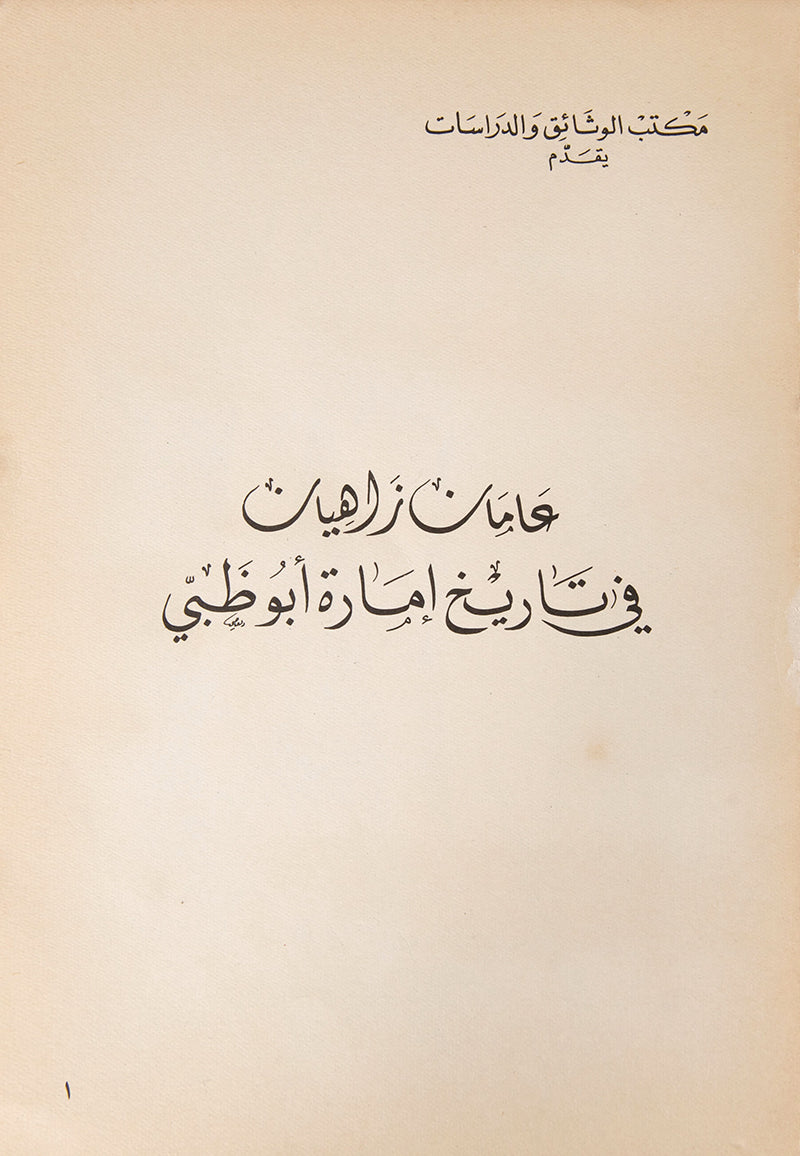 مَكْتبْ الوثَائِق وَالدرَاسَات
يقَدَّم
عَامَان زَاهِيان
في تَاريْخ إمَارة أبُوظَبيّ
١